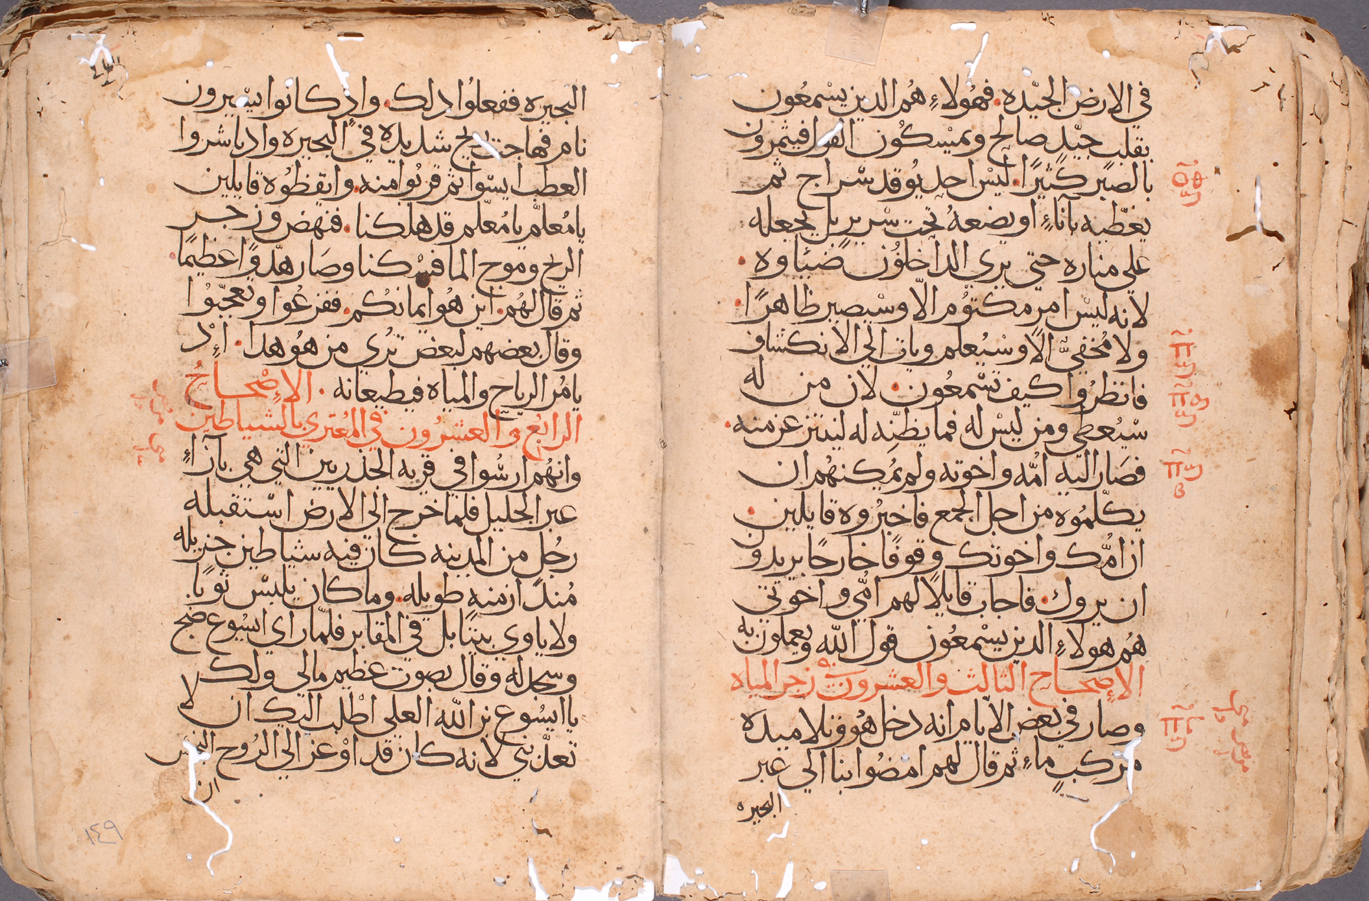 في الارض الجيّده. فهُولاءِ هُم الدين يسْمعُون
بقلبٍ جيّدٍ صالح ويمسْكُون القول فيتمرون
بالصبر كثيرًا. ليْسَ احد يُوقد سْراج ثم
يغطّيه باناءٍ او يضعهُ تحت سْرير بل يجعله
علي مناره حتي يري الداخلوُن ضياوه.
لانه ليْسَ امر مكتوُم الاّ وسْيصير ظاهرًا.
ولا مُخفيٌّ الاّ وسْيُعلم وياتي الي الانكشاف
فانظرُوا كيف تسْمعُون. لان من له
سْيُعطي ومن ليْس له فما يظنّه له لينتزعن منه.
فصَار اليه امُّه واخوته ولم يمُكنهُم ان
يكلّموُه من اجل الجمع فاخبرُوه قايلين.
ان امُّك واخوتك وقوفًا خارجًا يريدون
ان يروك. فاجاب قايلاً لهم امُّي واخوتي
هُم هولاءِ الدين يسْمعُون قول اللّه ويعملون به
الاصحاح الثالث والعشرون في زجر المياه
وصار في بعض الايام انه دخل هُو وتلاميده
مركبٍ ماءٍ ثم قال لهم امضُوا بنا الي عبر
البحيره
البحيره ففعلوُا دلك. واد كانوا يسْيرون
نام فهاجت ريح شديده في البحيره واد باشروا
العطب ايسْوا ثم قربُوا منه. وايقظوُه قايلين
يا مُعلّم يا مُعلّم قد هلكنا. فنهض وزجر
الريح وموج الما فسْكنا وصَار هدوًا عظيمًا.
ثم قال لهُم. اين هُو ايمانكُم. ففزعُوا وتعجّبُوا
وقال بعضهم لبعض تري من هوُ هدا. اد
يامرُ الرياح والمياه فيطيعانه. الاصْحاحُ
الرابعُ والعشرُون في المُعتري بالشياطين
وانهُم ارسُوا في قريه الجدريين التي هي بازاءِ
عبر الجليل فلما خرج الي الارض اسْتقبله
رجُل من المدينه كان فيه شياطين جزيله
مُند ازمنهٍ طويله. وما كان يلبسْ ثوبًا
ولا ياوي بيتًا بل في المقابر فلمّا راي ايسُوع ضج
وسْجد له وقال بصوت عظيم مالي ولك
يا ايسُوع بن اللّه العلي اطلب اليك ان لا
تعدّبني لانه كان قد اوْعز الي الرُوح النجس
ان
١٤٩